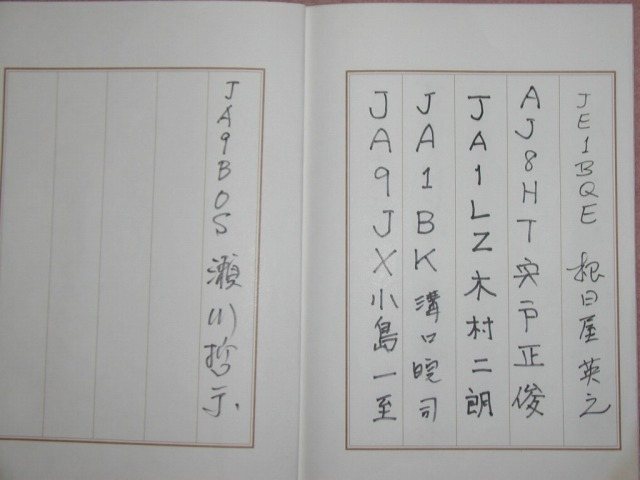 JE1BQE 根日屋英之
AJ8HT 宍戸正俊
JA1LZ 木村二朗
JA1BK 溝口皖司
JA9JX 小島一至
JA9BOS 瀬川哲示